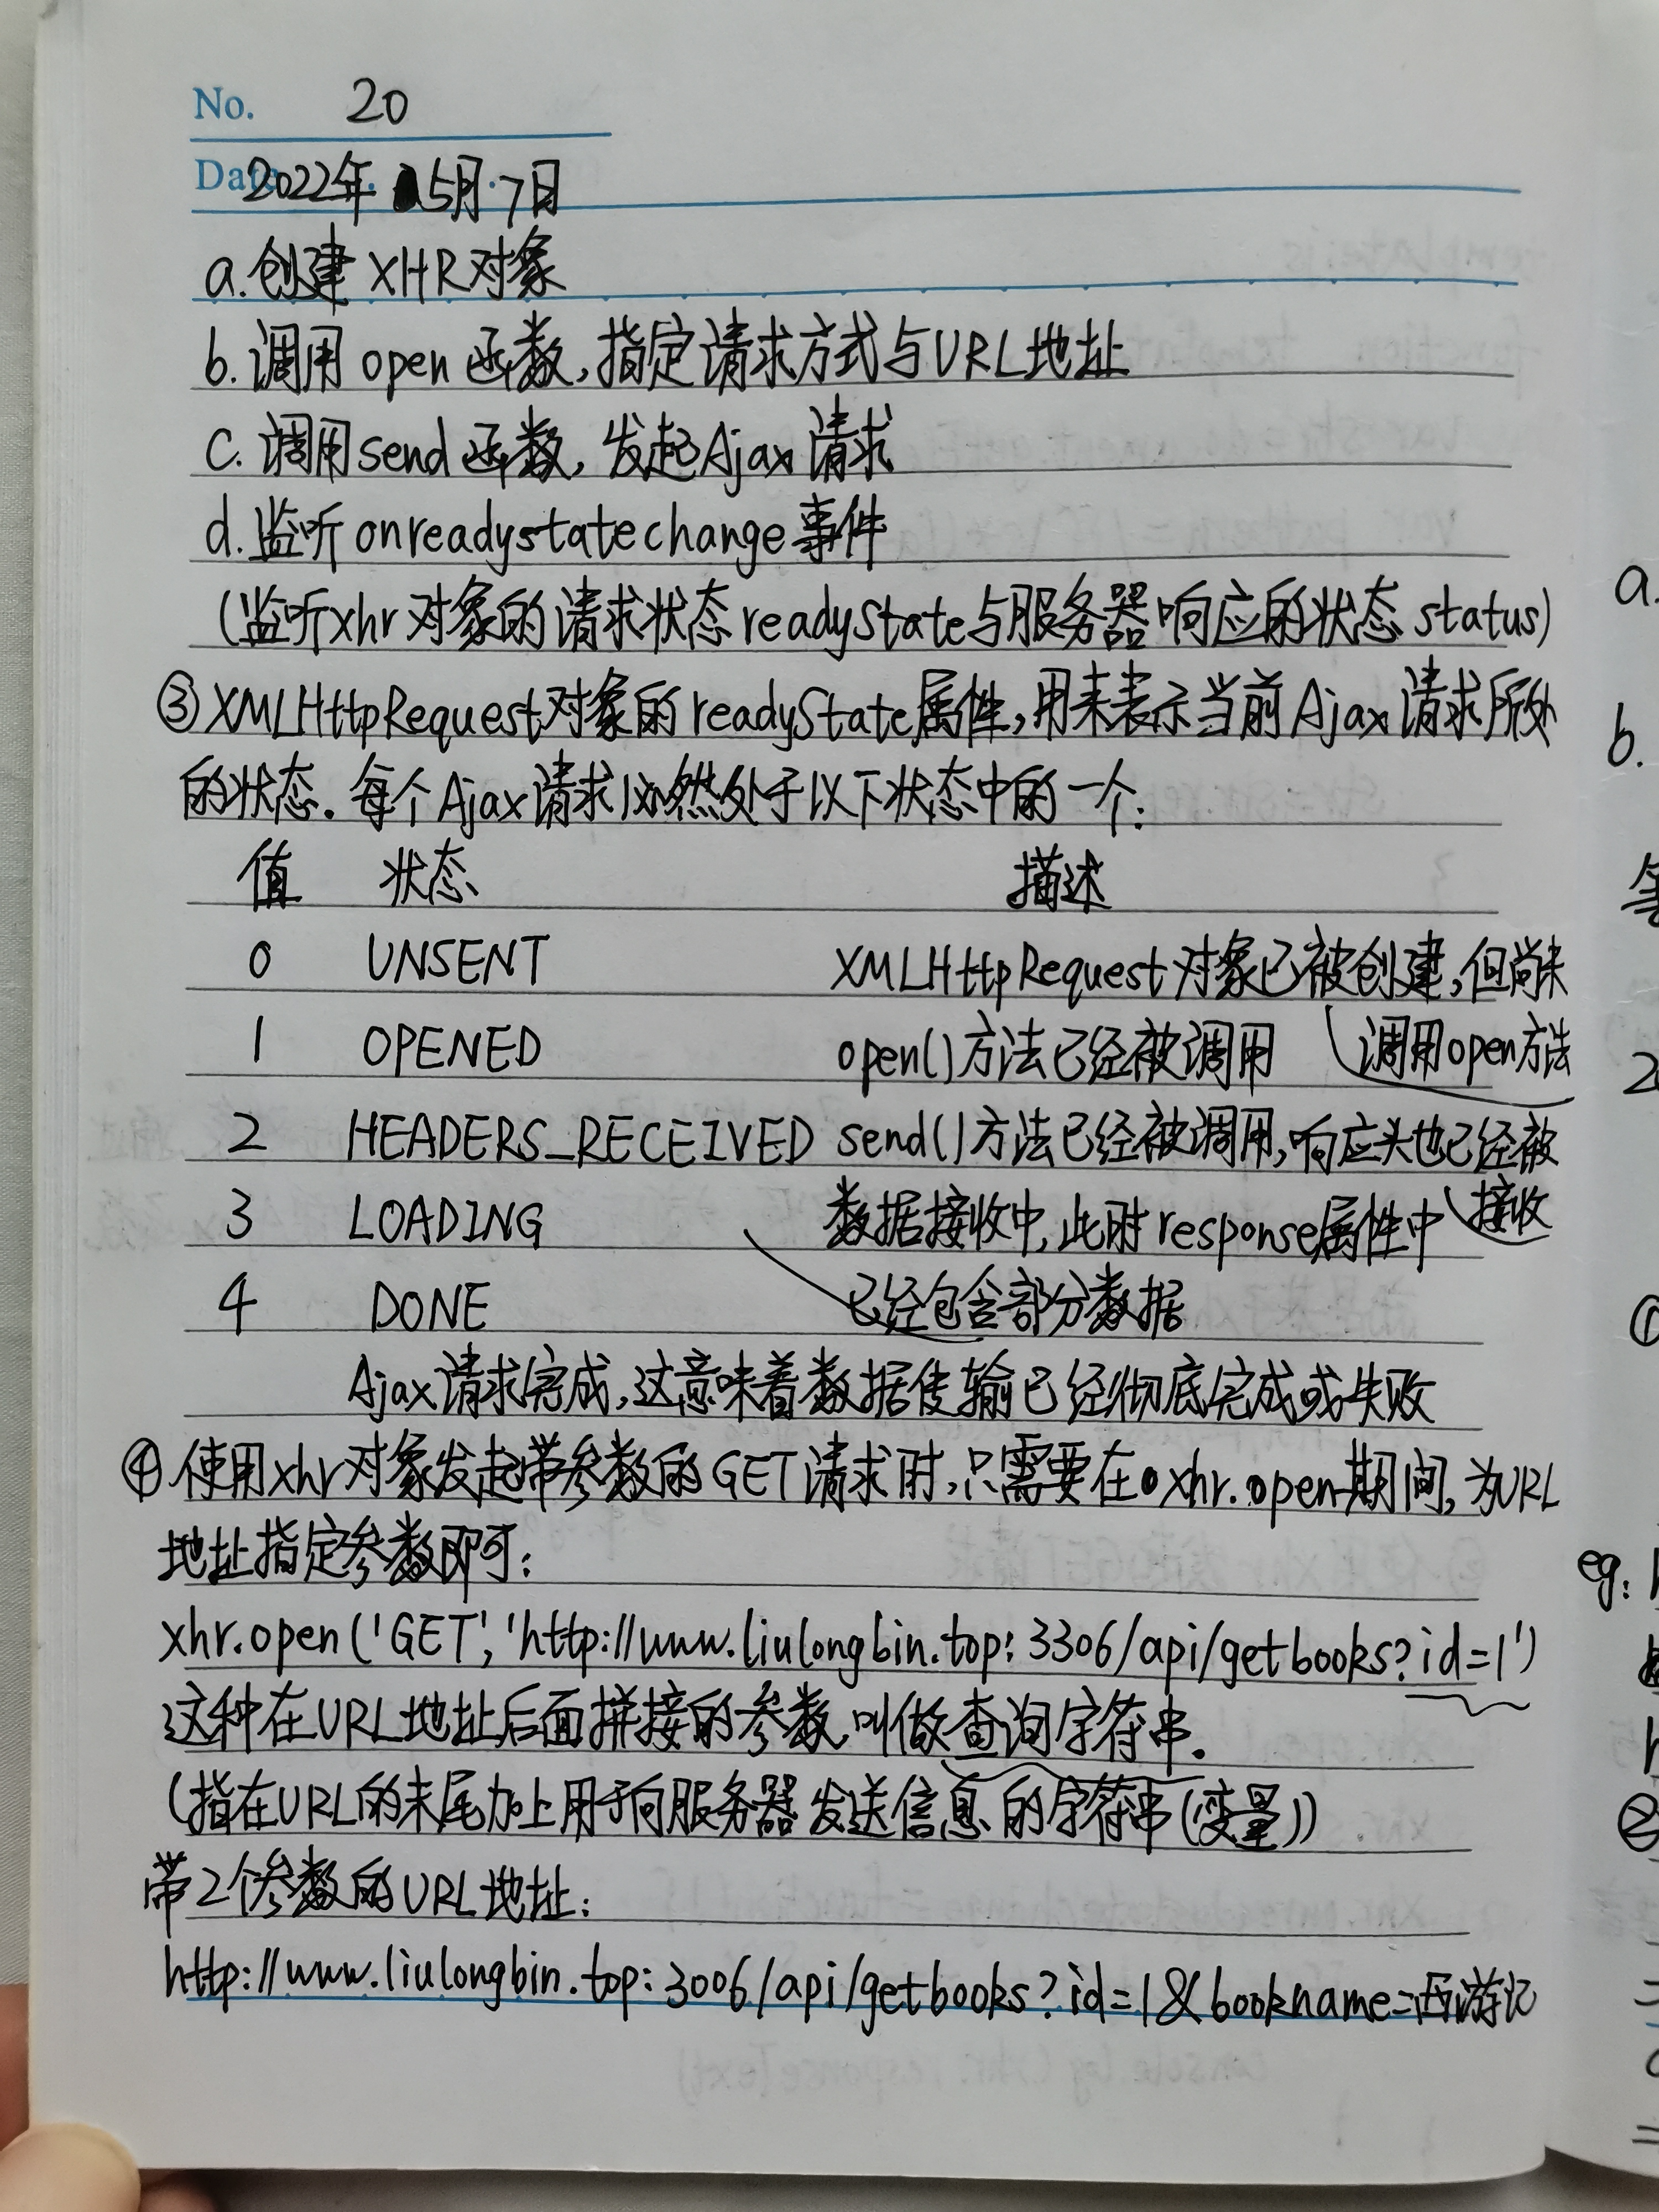 No. 20
Date 2022年.5月.7日
a.创建XHR对象
b.调用open函数,指定请求方式与URL地址
c.调用send函数,发起Ajax请求
d.监听onreadystatechange事件
(监听xhr对象的请求状态readyState与服务器响应的状态status)
③XMLHttpRequest对象的readyState属性,用来表示当前Ajax请求所处
的状态。每个Ajax请求必然处于以下状态中的一个:
值 状态 描述
0 UNSENT XMLHttpRequest对象已被创建,但尚未
调用open方法
1 OPENED open()方法已经被调用
2 HEADERS_RECEIVED send()方法已经被调用,响应头也已经被
接收
3 LOADING 数据接收中,此时response属性中
已经包含部分数据
4 DONE
Ajax请求完成,这意味着数据传输已经彻底完成或失败
④使用xhr对象发起带参数的GET请求时,只需要在xhr.open期间,为URL
地址指定参数即可:
xhr.open('GET','http://www.liulongbin.top:3306/api/getbooks?id=1')
这种在URL地址后面拼接的参数,叫做查询字符串。
(指在URL的末尾加上用于向服务器发送信息的字符串(变量))
带2个参数的URL地址:
http://www.liulongbin.top:3006/api/getbooks?id=1&bookname=西游记
a.
b.
2
①
eg:
②